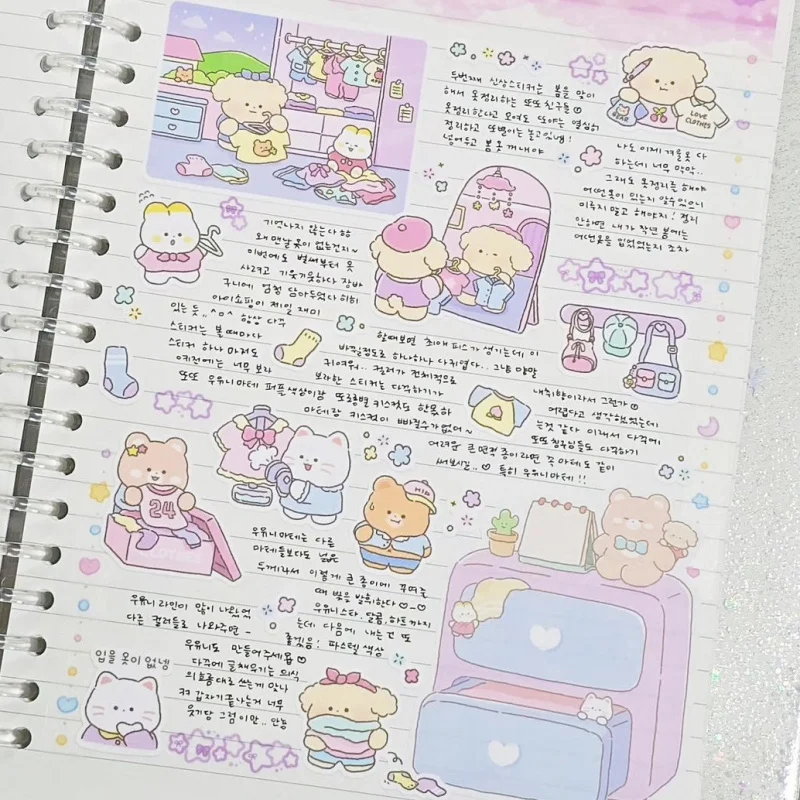 두번째 신상스티커는 봄을 맞이
해서 옷정리하는 또또친구들
옷정리한다고 모여도 또야는 열심히
정리하고 또뺭이는 놀고있넹!
넣어두고 봄옷 꺼내야
BEAR
LOVE
CLOTHES
나도 이제 겨울옷 다
하는데 너무 막막..
그래도 옷정리를 해야
어떤옷이 있는지 알수있으니
미루지 말고 해야지! 정리
안하면 내가 작년 봄에는
어떤옷을 입었었는지 조차
기억나지 않는다 하하
왜 맨날 옷이 없는건지~
이번에도 벌써부터 옷
사려고 기웃기웃하다 장바
구니에 엄청 담아두었다 히히
아이쇼핑이 제일 재미
있는 듯.. ^o^ 항상 다꾸
스티커는 볼 때마다
스티커 하나 마저도
이전에는 너무 보라
또또 우유니마테 퍼플색상이랑
할때보면 최애 피스가 생기는데 이
바뀔정도로 하나하나 다귀엽다.. 그나 말말
귀여워.. 컬러가 전체적으로
보라한 스티커는 다꾸하기가
또롱별 키스컷도 함목하
마테랑 키스컷이 빠질수가없어~
내취향이라서 그런가
어렵다고 생각했었는데
는것 같다 이래서 다꾸에
또또친구님들도 다꾸하기
어려운 큰 면적 종이라면 꼭 마테도 같이
써보시길..♡ 특히 우유니마테!!
24
CLOTHES
우유니마테는 다른
마테들보다도 넓은
두께라서 이렇게 큰 종이에 꾸며줄
때 빛을 발휘한다 ♡-♡
우유니 라인이 많이 나왔었
우유니스타, 달콤, 하트까지
다른 컬러들로 나와주면 ~
는데 다음에 내는 건 또
좋겠음! 파스텔 색상
우유니도 만들어주세욥
다꾸에 글채우기는 의식
의 흐름대로 쓰는게 맞나
ㅋㅋ 갑자기끝나는거 너무
웃기당 그럼이만.. 안뇽
입을 옷이 없넹